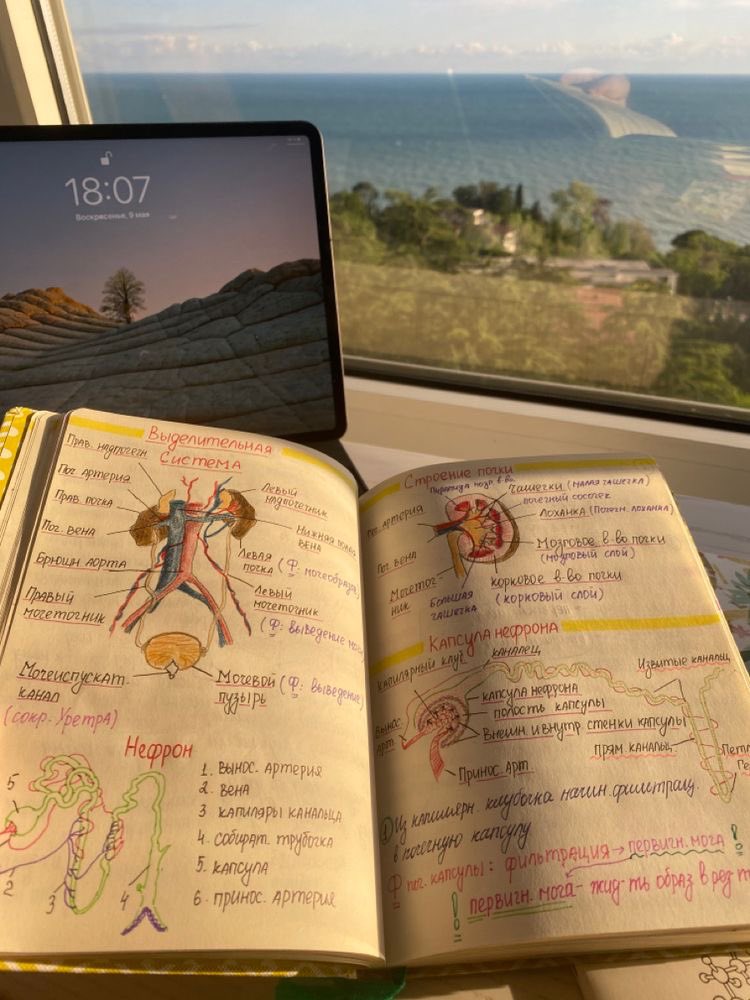 18:07
Воскресенье, 9 мая
Выделительная
система
Прав. надпочечн
Поч. артерия
Прав. почка
Поч. вена
Брюшн. аорта
Правый
мочеточник
Левый
надпочечник
Нижняя полая
вена
Левая
почка (Ф: мочеобразов
Левый
мочеточник
(Ф: выведение мочи
Мочеиспускат.
канал
(сокр. Уретра)
Мочевой (Ф: выведение)
пузырь
Нефрон
5
2
3
4
1. вынос. артерия
2. вена
3 капиляры канальца
4. собират. трубочка
5. капсула
6. принос. артерия
Строение почки
Пирамида мозг. в-ва
Поч. артерия
Поч. вена
Мочеточ-
ник
Большая
чашечка
Чашечки (малая чашечка)
почечный сосочек
Лоханка (Почечн. лоханка)
Мозговое в-во почки
(мозговый слой)
корковое в-во почки
(корковый слой)
Капсула нефрона
капилярный клуб.
каналец
Извитые канальц
капсула нефрона
полость капсулы
Внешн. и внутр. стенки капсулы
Вынос.
арт.
прям. каналец
Петл
Ге
Принос. арт
① Из капиллярн. клубочка начин. фильтрац.
в почечную капсулу
Ф поч. капсулы: фильтрация → первичн. моча !
! первичн. моча - жид-ть образ в рез-т